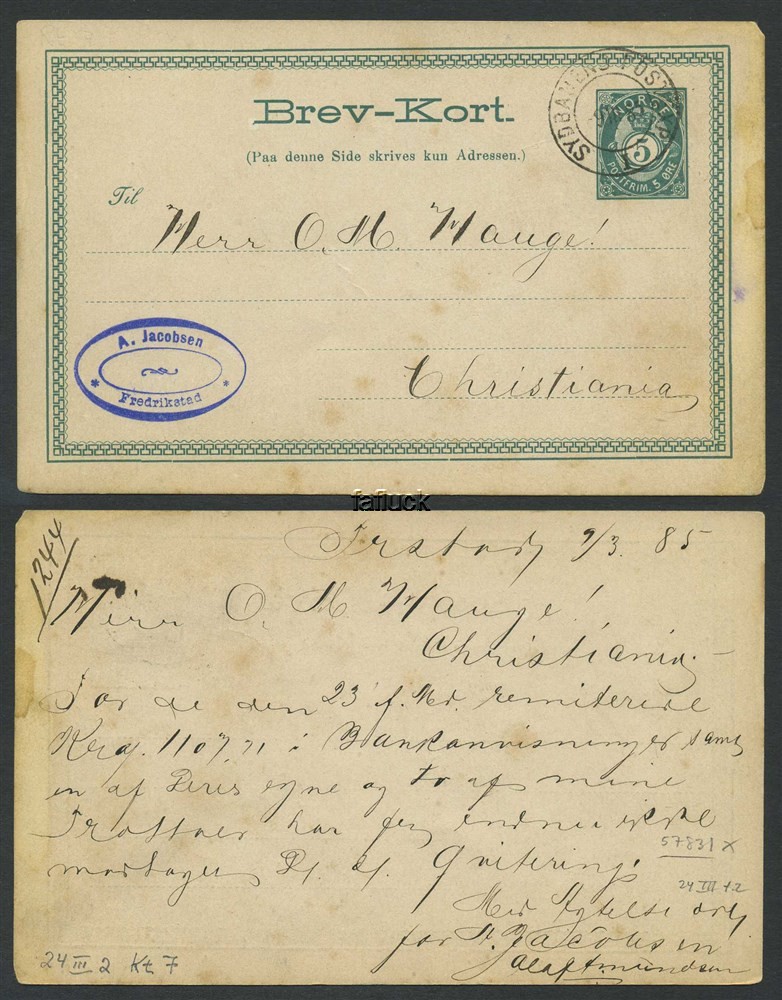 Brev-Kort.
(Paa denne Side skrives kun Adressen.)
SYDBANENS POSTEXP.
NORGE
5
POSTFRIM. 5 ØRE
Til
Herr O. M. Hauge!
A. Jacobsen
Fredrikstad
Christiania
fafluck
1244
9/3. 85
Herr O. M. Hauge!
Christiania
For de den 23' f. Md. remiterede
i Bankanvisninger samt
en af Deres egne og to af mine
har jeg endnu ikke
57831 x
modtaget Qvitering.
24 III
Med Agtelse
for A. Jacobsen
24 III 2 Kt 7